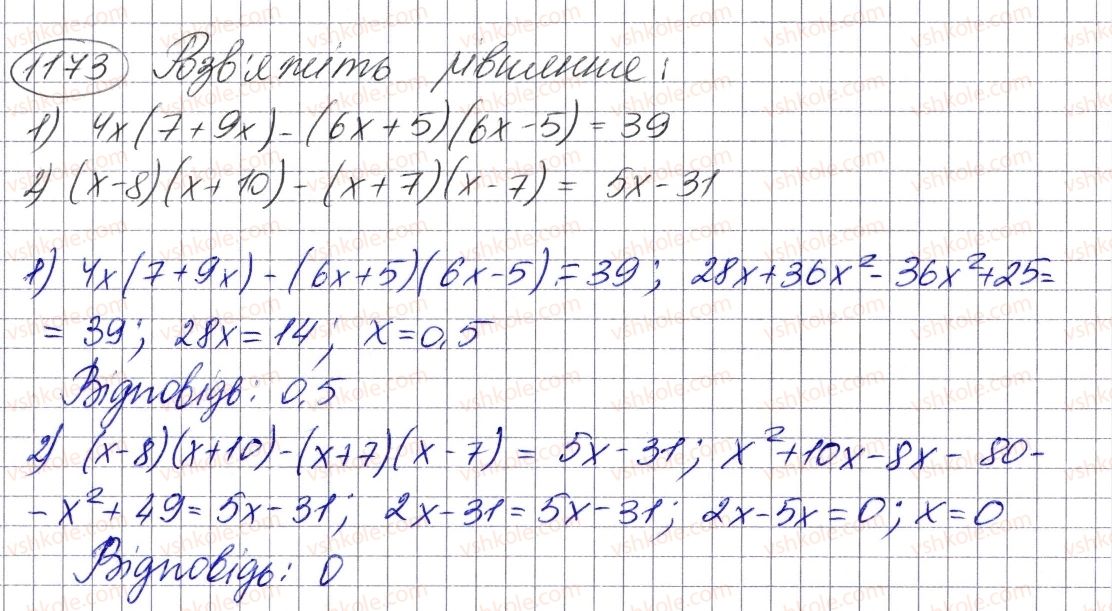 1173 Розв'яжіть рівняння:
1) 4x(7+9x)-(6x+5)(6x-5)=39
2) (x-8)(x+10)-(x+7)(x-7)= 5x-31
1) 4x(7+9x)-(6x+5)(6x-5)=39; 28x+36x²-36x²+25=
= 39; 28x=14; x=0,5
Відповідь: 0,5
2) (x-8)(x+10)-(x+7)(x-7)= 5x-31; x²+10x-8x-80-
-x²+49=5x-31; 2x-31=5x-31; 2x-5x=0; x=0
Відповідь: 0